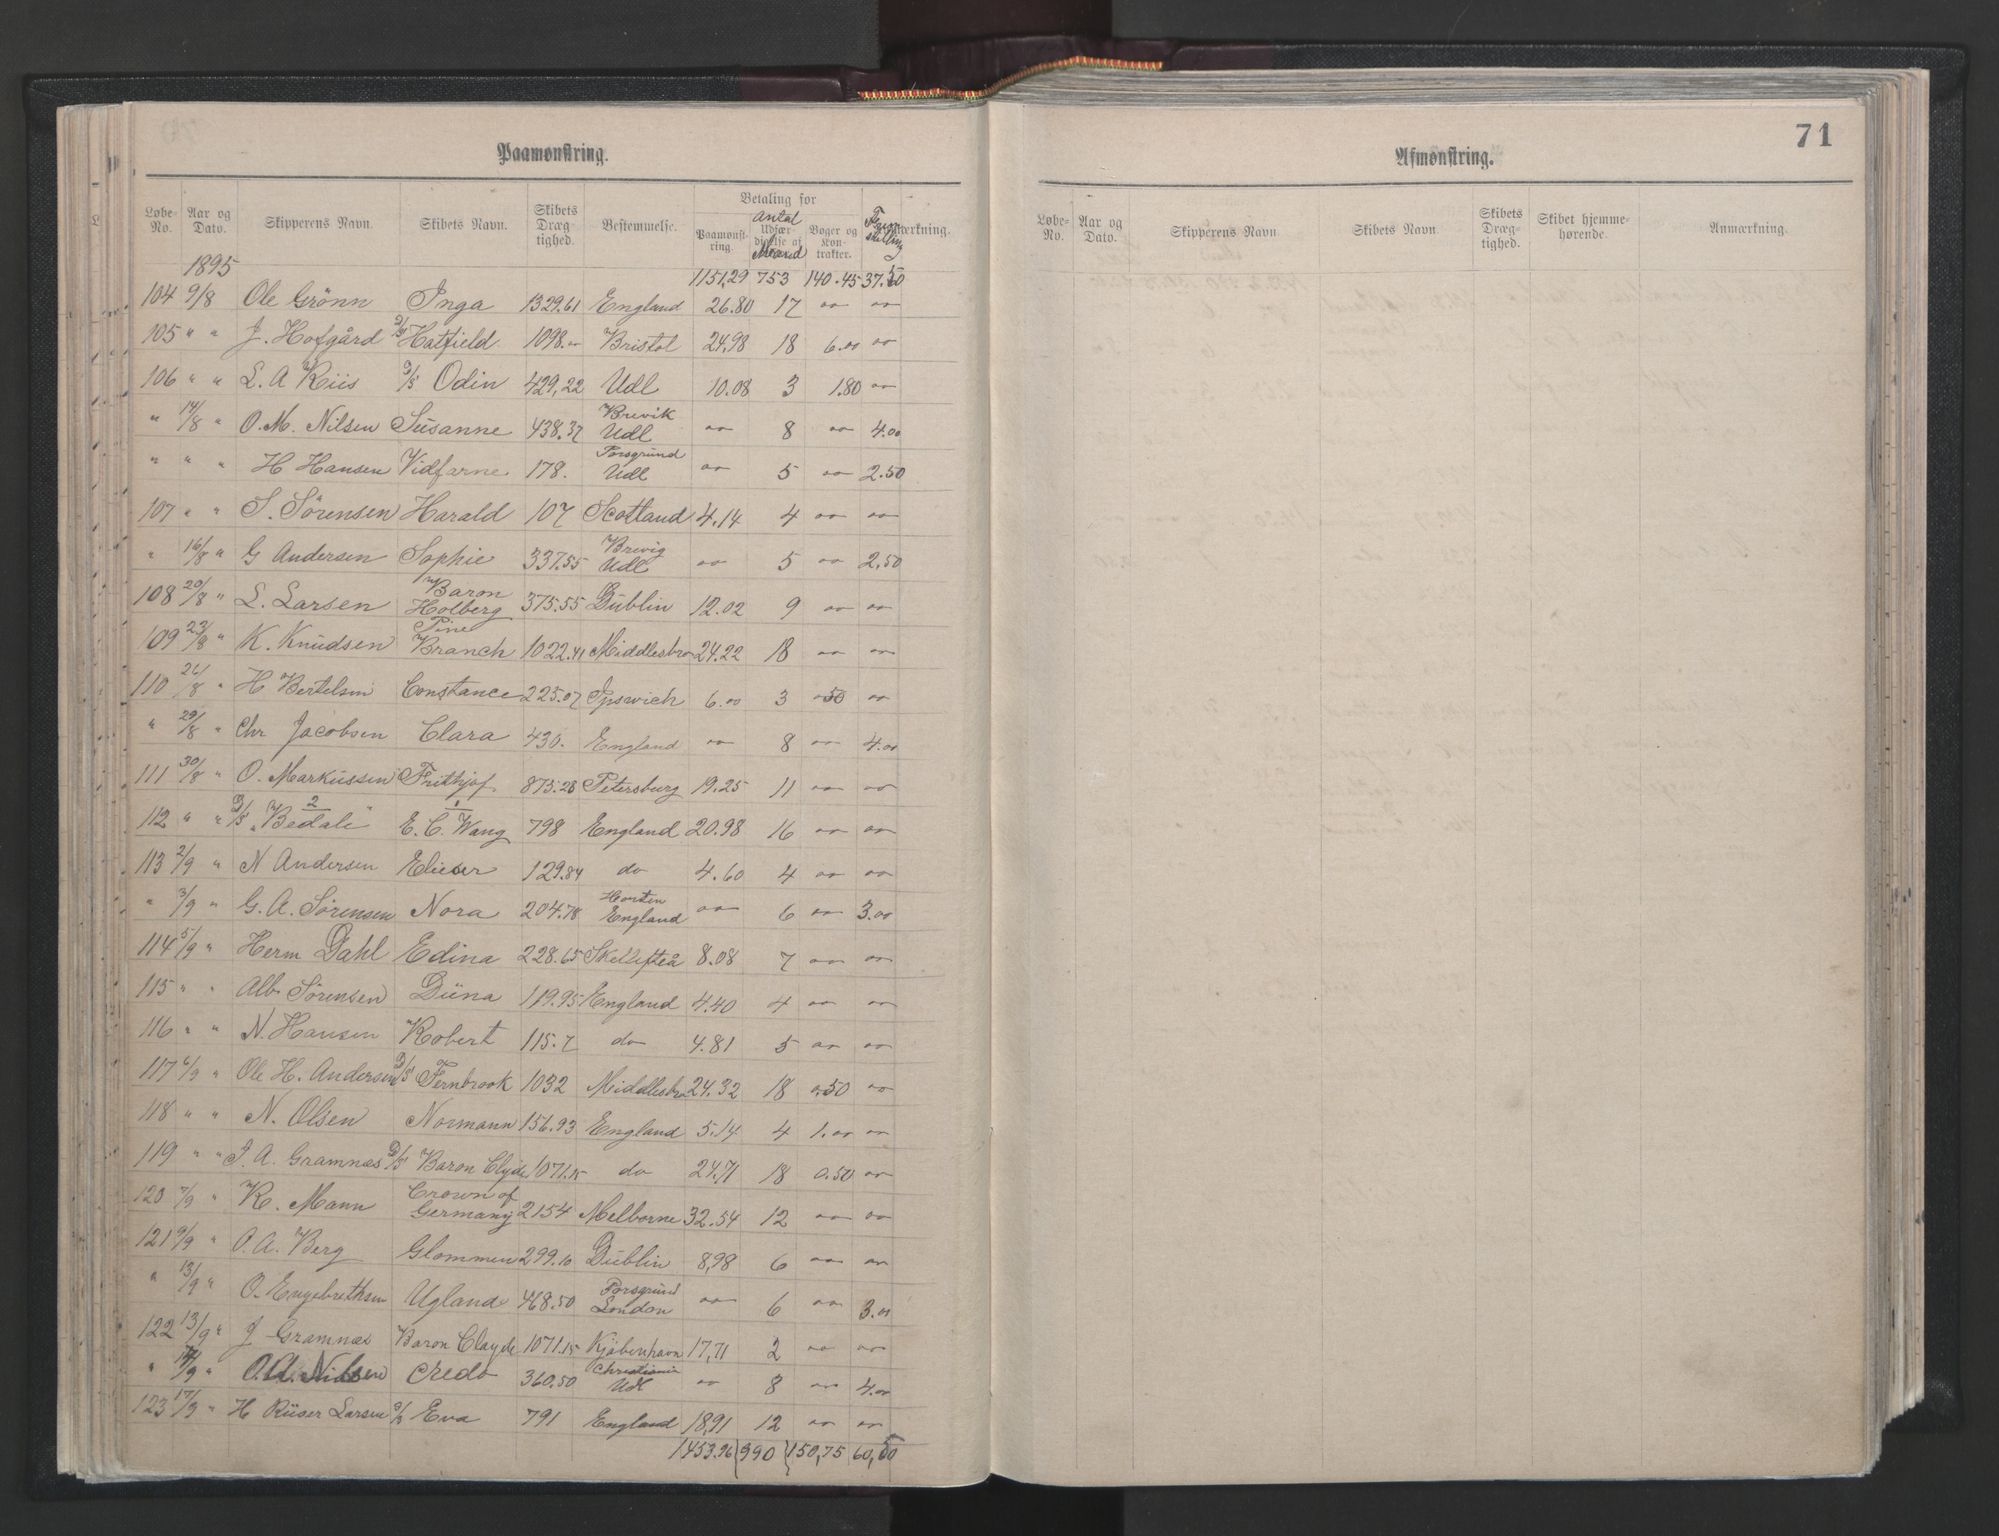 Paamønstring.
Løbe-No. Aar og Dato. Skipperens Navn. Skibets Navn. Skibets Dræg-tighed. Bestemmelse. Betaling for Paamønst-ring. Antal Mand Udfær-digelse af Bøger og Kon-trakter. mærkning.
1895 1151,29 753 140.45 37.50
104 9/8 Ole Grönn Inga 1329.61 England 26.80 17 " "
105 " " J. Hofgård D/S Hatfield 1098." Bristol 24,98 18 6.00 "
106 " " L. A Riis D/S Odin 429,22 Udl 10.08 3 1.80 "
" 14/8 " O. M. Nilsen Susanne 438.37 Brevik Udl " 8 " 4.00
" " " H Hansen Vidfarne 178. Porsgrund Udl " 5 " 2.50
107 " " S. Sörensen Harald 107 Scotland 4.14 4 " "
" 16/8 " G Andersen Sophie 337.55 Brevig Udl " 5 " 2,50
108 20/8 " L. Larsen Baron Holberg 375.55 Dublin 12.02 9 " "
109 23/8 " K. Knudsen Pine Branch 1022.41 Middlesbro 24.22 18 " "
110 26/8 " H Bertelsen Constance 225.07 Ipswich 6.00 3 050 "
" 29/8 " Chr Jacobsen Clara 430. England " 8 " 4.00
111 30/8 " O. Markussen Frithjof 875.28 Petersburg 19.25 11 " "
112 " " D/S "Bedale" 2 E. C. Wang 1 798 England 20.98 16 " "
113 2/9 " N Andersen Elieser 129.84 do 4.60 4 " "
" 3/9 " G. A. Sörensen Nora 204.78 Horten England " 6 " 3.00
114 5/9 " Herm Dahl Edina 228.65 Skellefteå 8.08 7 " "
115 " " Alb. Sörensen Düna 119.95 England 4.40 4 " "
116 " " N. Hansen Robert 115.7 do 4.81 5 " "
117 6/9 " Ole H. Andersen D/S Fernbrook 1032 Middlesbro 24,32 18 0,50 "
118 " " N. Olsen Normann 156.93 England 5.14 4 1.00 "
119 " " J. A. Gramnæs D/S Baron Clyde 1071.15 do 24,71 18 0.50 "
120 7/9 " K. Mann Crown of Germany 2154 Melborne 32.54 12 " "
121 9/9 " O. A. Berg Glommen 299.10 Dublin 8,98 6 " "
" 13/9 " O. Engebrethsen Ugland 468.50 Porsgrund London " 6 " 3.00
122 13/9 " J Gramnæs Baron Clayde 1071.15 Kjöbenhavn 17,71 2 " "
" 14/9 " O. A. Nilsen Credo 360.50 Christiania Udl " 8 " 4.00
123 17/9 " H Riiser Larsen D/S Eva 791 England 18,91 12 " "
1453.96 990 150,75 60,50
71
Afmønstring.
Løbe-No. Aar og Dato. Skipperens Navn Skibets Navn Skibets Dræg-tighed. Skibet hjemme-hørende. Anmærkning.